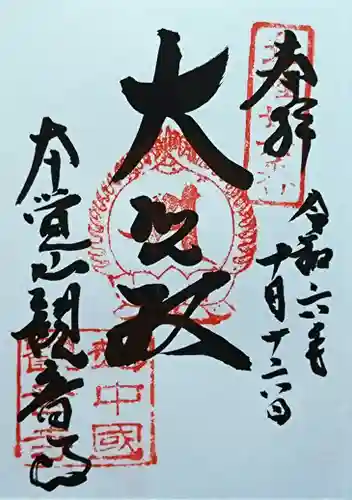 奉拝
令和六年
十月十六日
大悲殿
本覚山観音寺
備中國